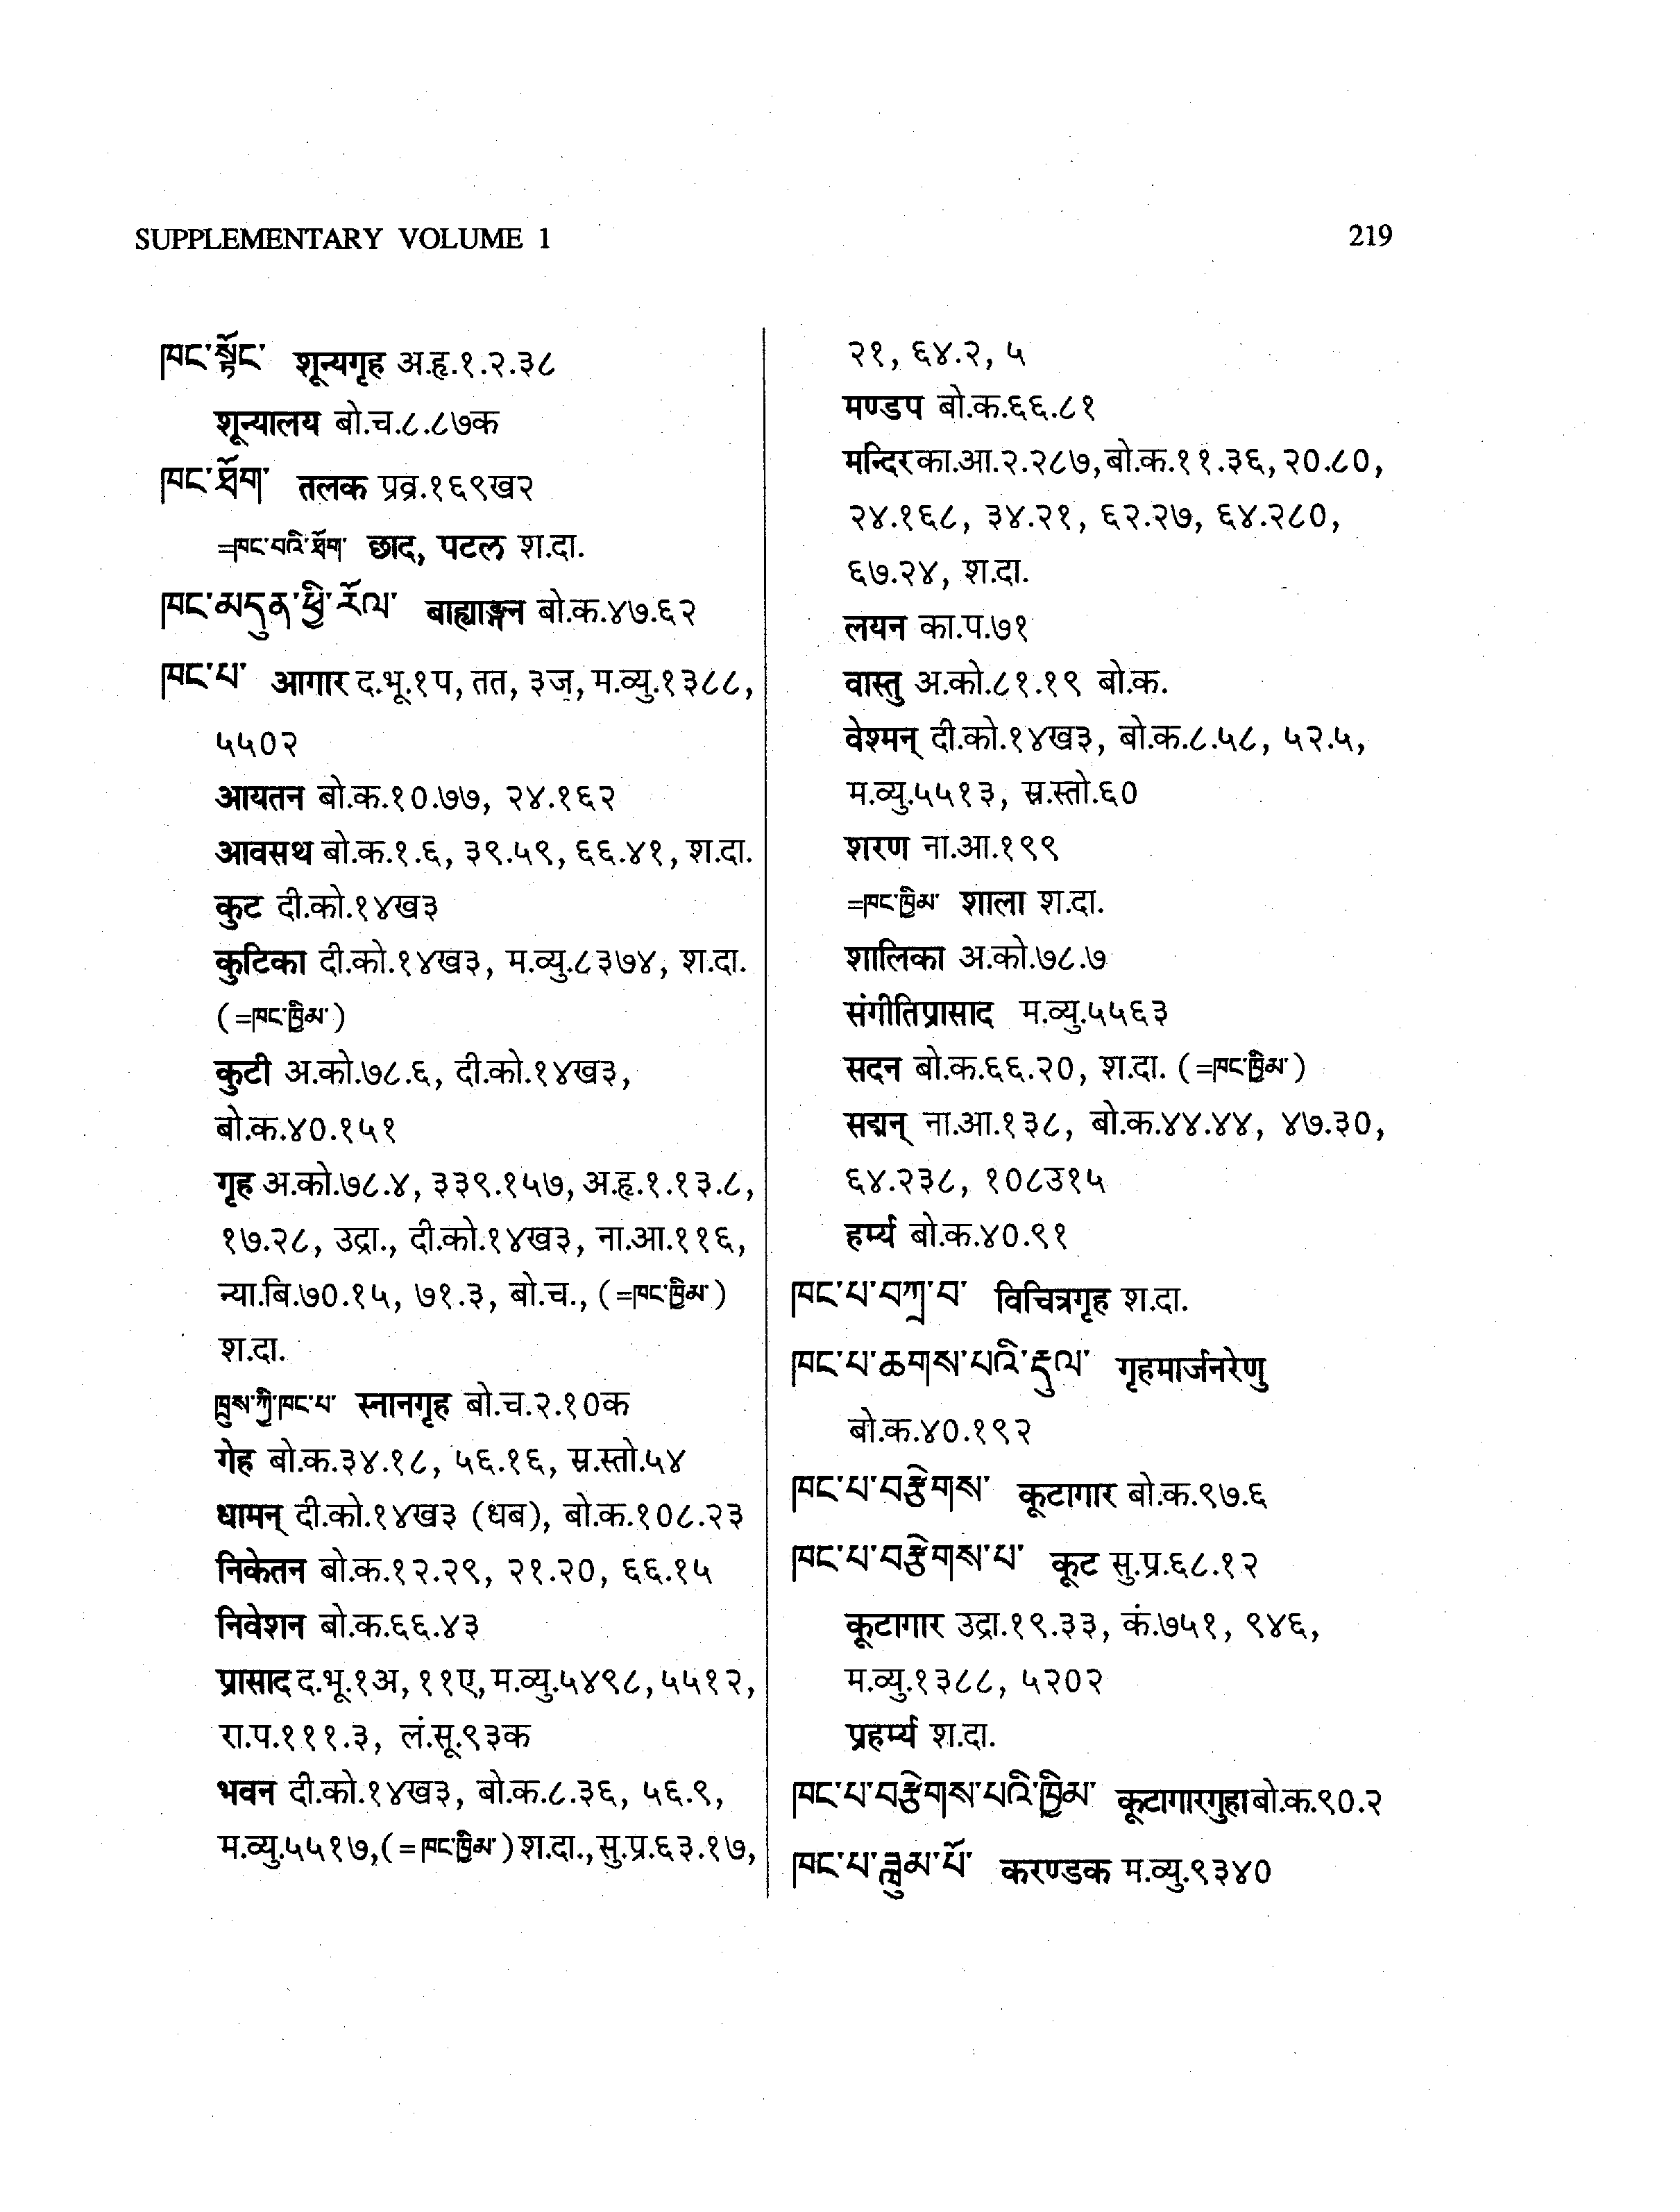 SUPPLEMENTARY VOLUME 1
219
ཁང་སྟོང་ शून्यगृह अ.हृ.१.२.३८
शून्यालय बो.च.८.८७क
ཁང་ཐོག་ तलक प्रव्र.१६९ख२
=ཁང་བའི་ཐོག་ छाद, पटल श.दा.
ཁང་མདུན་ཕྱི་རོལ་ बाह्याङ्गन बो.क.४७.६२
ཁང་པ་ आगार द.भू.१प, तत, ३ज, म.व्यु.१३८८,
५५०२
आयतन बो.क.१०.७७, २४.१६२
आवसथ बो.क.१.६, ३९.५९, ६६.४१, श.दा.
कुट दी.को.१४ख३
कुटिका दी.को.१४ख३, म.व्यु.८३७४, श.दा.
(=ཁང་ཁྱིམ་)
कुटी अ.को.७८.६, दी.को.१४ख३,
बो.क.४०.१५१
गृह अ.को.७८.४, ३३९.१५७, अ.हृ.१.१३.८,
१७.२८, उद्रा., दी.को.१४ख३, ना.आ.११६,
न्या.बि.७०.१५, ७१.३, बो.च., (=ཁང་ཁྱིམ་)
श.दा.
ཁྲུས་ཀྱི་ཁང་པ་ स्नानगृह बो.च.२.१०क
गेह बो.क.३४.१८, ५६.१६, स्र.स्तो.५४
धामन् दी.को.१४ख३ (धब), बो.क.१०८.२३
निकेतन बो.क.१२.२९, २१.२०, ६६.१५
निवेशन बो.क.६६.४३
प्रासाद द.भू.१अ, ११ए, म.व्यु.५४९८, ५५१२,
रा.प.१११.३, लं.सू.९३क
भवन दी.को.१४ख३, बो.क.८.३६, ५६.९,
म.व्यु.५५१७, (=ཁང་ཁྱིམ་) श.दा., सु.प्र.६३.१७,
२१, ६४.२, ५
मण्डप बो.क.६६.८१
मन्दिर का.आ.२.२८७, बो.क.११.३६, २०.८०,
२४.१६८, ३४.२१, ६२.२७, ६४.२८०,
६७.२४, श.दा.
लयन का.प.७१
वास्तु अ.को.८१.१९ बो.क.
वेश्मन् दी.को.१४ख३, बो.क.८.५८, ५२.५,
म.व्यु.५५१३, स्र.स्तो.६०
शरण ना.आ.१९९
=ཁང་ཁྱིམ་ शाला श.दा.
शालिका अ.को.७८.७
संगीतिप्रासाद म.व्यु.५५६३
सदन बो.क.६६.२०, श.दा. (=ཁང་ཁྱིམ་)
सद्मन् ना.आ.१३८, बो.क.४४.४४, ४७.३०,
६४.२३८, १०८उ१५
हर्म्य बो.क.४०.९१
ཁང་པ་བཀྲ་བ་ विचित्रगृह श.दा.
ཁང་པ་ཆགས་པའི་རྡུལ་ गृहमार्जनरेणु
बो.क.४०.१९२
ཁང་པ་བརྩེགས་ कूटागार बो.क.९७.६
ཁང་པ་བརྩེགས་པ་ कूट सु.प्र.६८.१२
कूटागार उद्रा.१९.३३, कं.७५१, ९४६,
म.व्यु.१३८८, ५२०२
प्रहर्म्य श.दा.
ཁང་པ་བརྩེགས་པའི་ཁྱིམ་ कूटागारगुहा बो.क.९०.२
ཁང་པ་ཟླུམ་པོ་ करण्डक म.व्यु.९३४०